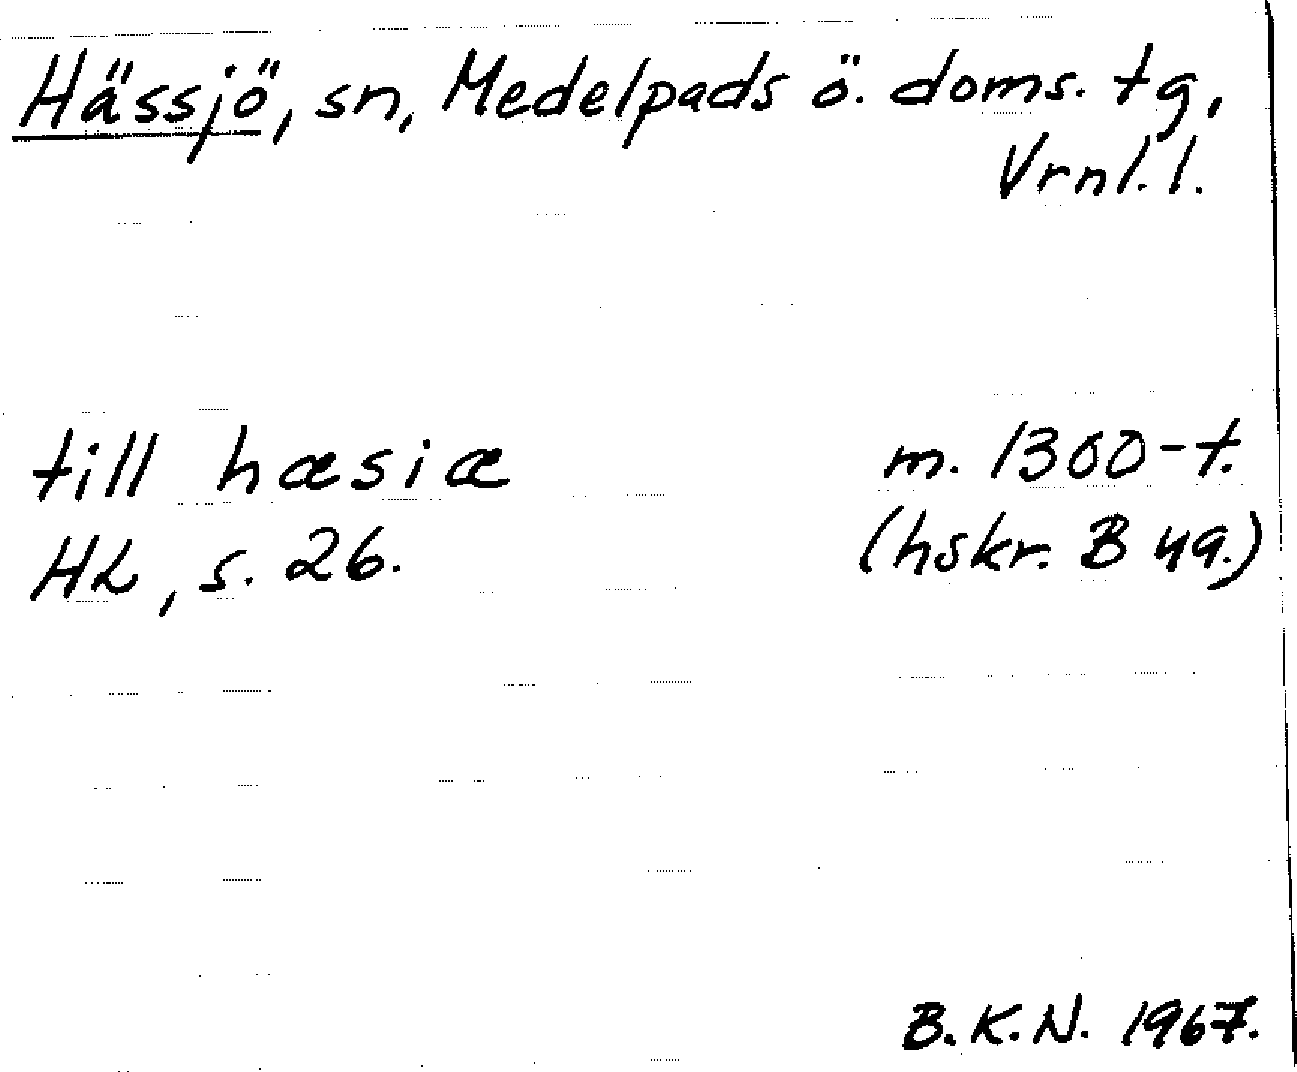 Hässjö, sn, Medelpads ö. doms. tg,
Vrnl. l.
till hæsiæ m. 1300-t.
HL, s. 26. (hskr. B 49.)
B.K.N. 1967.